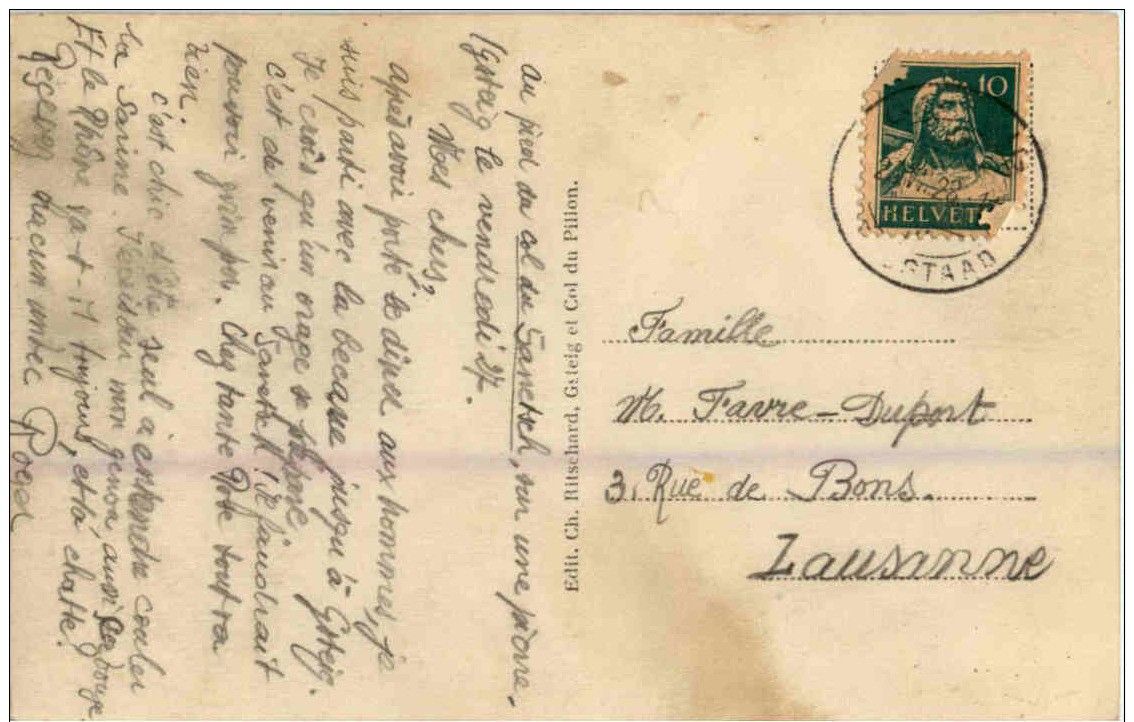 au pied du col du Sanetsch, sur une pierre,
(Gsteig le vendredi 27.
Mes chers,
après avoir porté le dîner aux hommes, je
suis parti avec la bécane jusqu'à Gsteig.
Je crois qu'un orage se prépare,
c'est de l' venir au Sanetsch! Il faudrait
pouvoir grimper. Chez tante Rose tout va
bien.
c'est chic d'être seul à entendre couler
la Sarine. mon genou aussi
Et le Rhône va-t-il toujours, et la chatte?
Recevez chacun un bec Roger
Edit. Ch. Ritschard, Gsteig et Col du Pillon.
10
HELVET
STAAD
Famille
M. Favre-Duport
3, Rue de Bons.
Lausanne